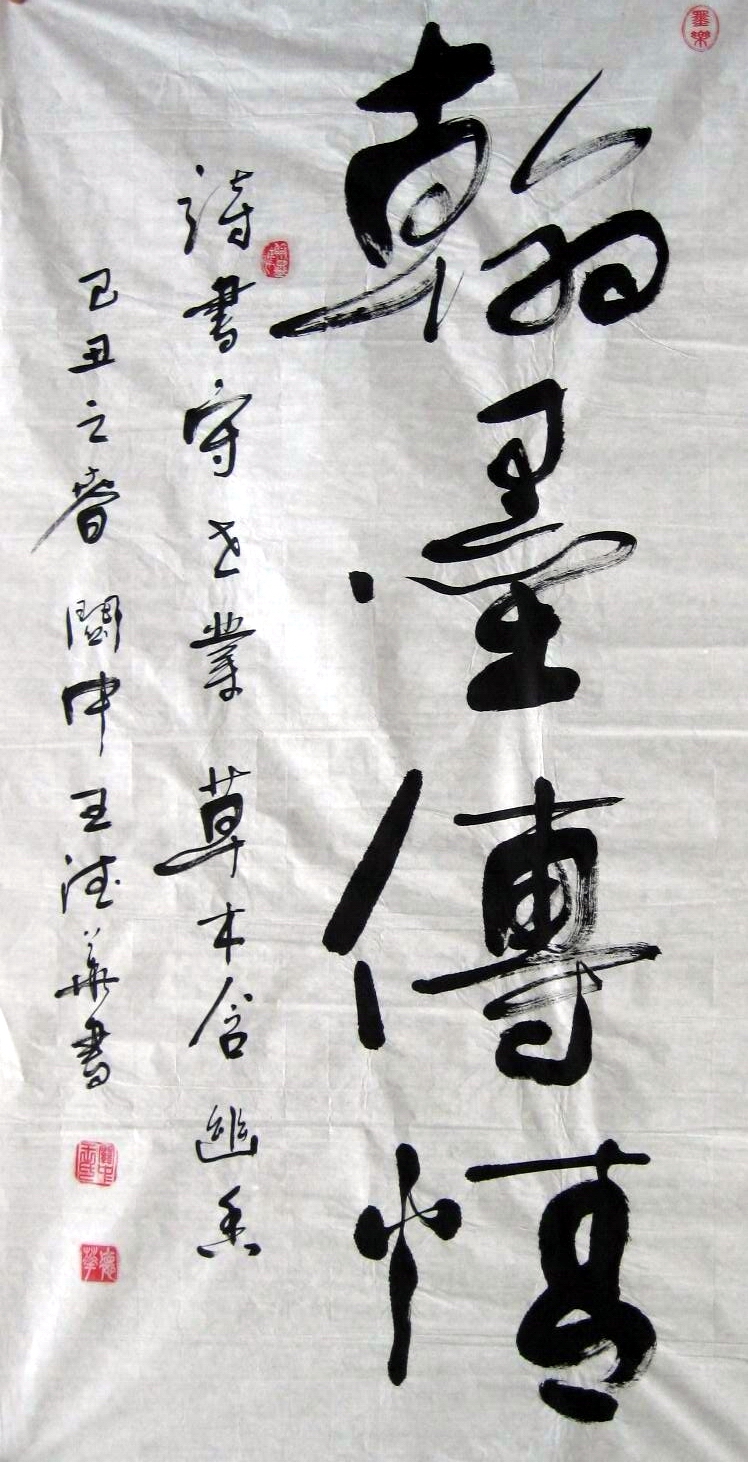 翰墨傳情
詩書守世業 草木含幽香
己丑之春 關中王德華書
墨樂